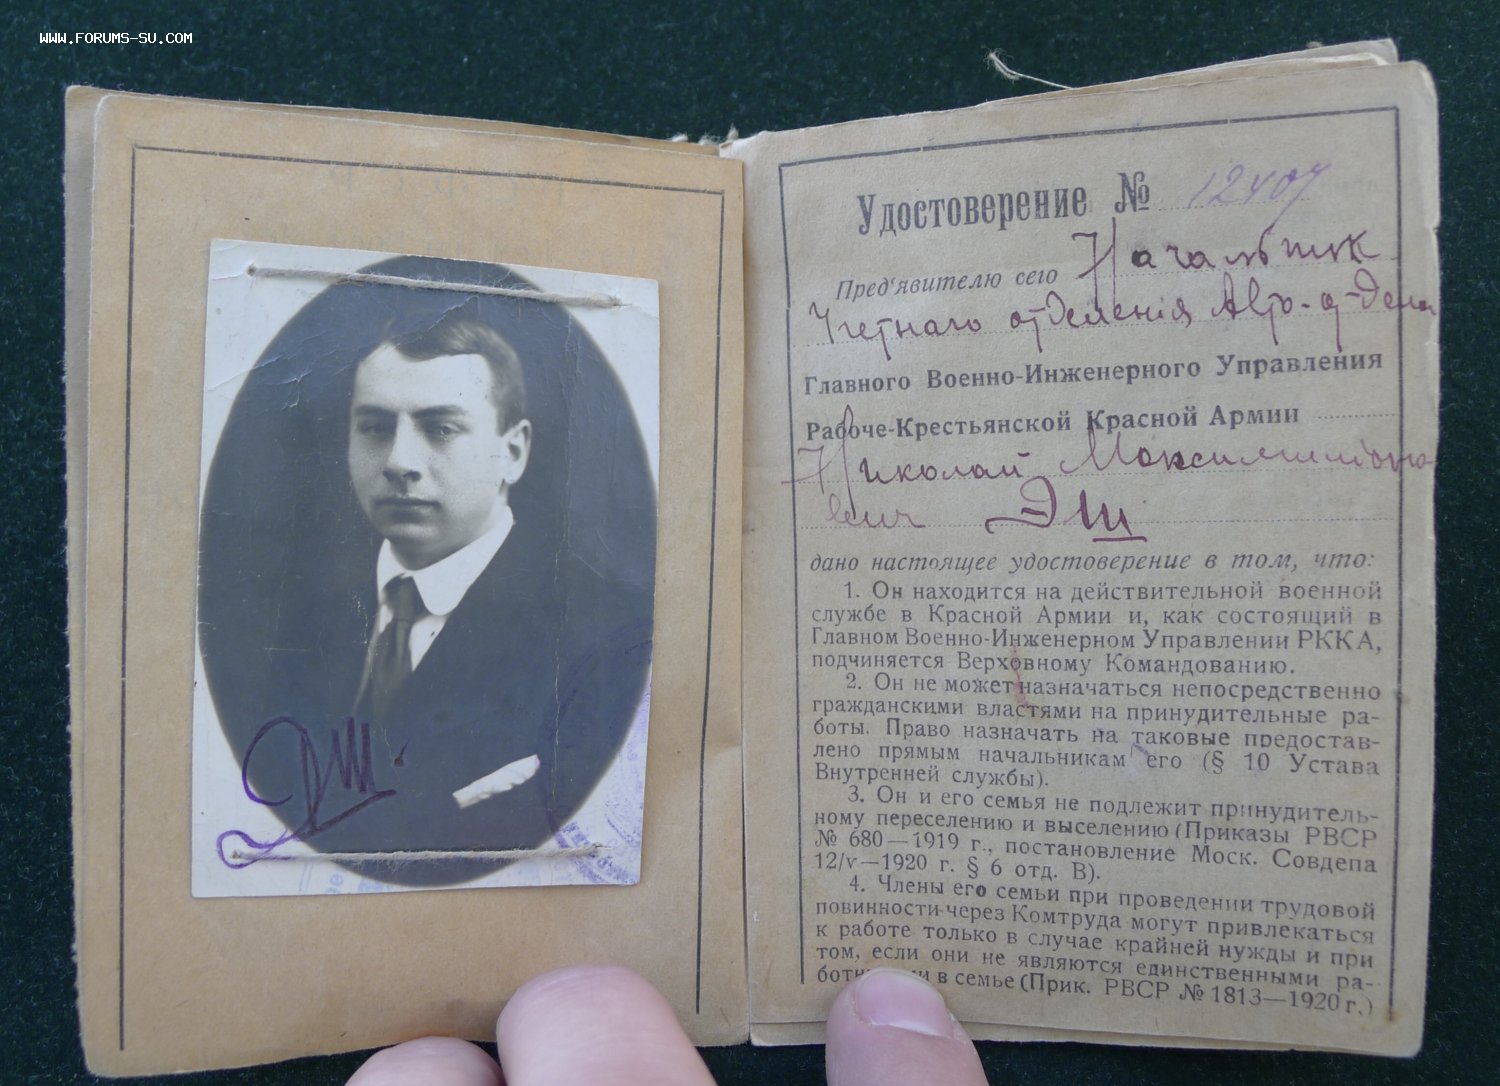 WWW.FORUMS-SU.COM
Удостоверение № 12407
Пред'явителю сего Начальник
Учетнаго отделенія Авто-отдела
Главного Военно-Инженерного Управления
Рабоче-Крестьянской Красной Армии
Николай Максимилиано
вич Эш
дано настоящее удостоверение в том, что:
1. Он находится на действительной военной
службе в Красной Армии и, как состоящий в
Главном Военно-Инженерном Управлении РККА,
подчиняется Верховному Командованию.
2. Он не может назначаться непосредственно
гражданскими властями на принудительные ра-
боты. Право назначать на таковые предостав-
лено прямым начальникам его (§ 10 Устава
Внутренней службы).
3. Он и его семья не подлежит принудитель-
ному переселению и выселению (Приказы РВСР
№ 680—1919 г., постановление Моск. Совдепа
12/v—1920 г. § 6 отд. В).
4. Члены его семьи при проведении трудовой
повинности через Комтруда могут привлекаться
к работе только в случае крайней нужды и при
том, если они не являются единственными ра-
в семье (Прик. РВСР № 1813—1920 г.)